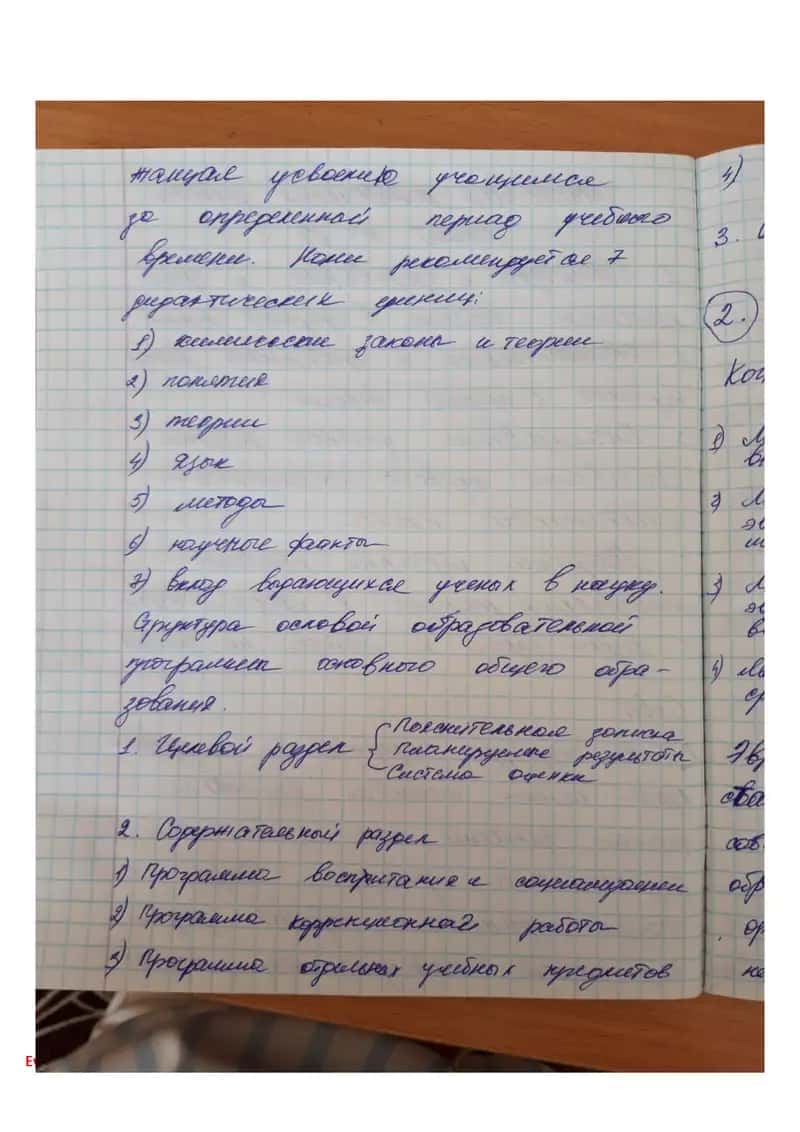 жащая усвоению учащимися
за определенный период учебного
времени. Нами рекомендуется 7
дидактических единиц:
1) химические законы и теории
2) понятия
3) теории
4) язык
5) методы
6) научные факты
7) вклад выдающихся ученых в науку.
Структура основой образовательной
программы основного общего обра-
зования.
1. Целевой раздел { Пояснительная записка
Планируемые результаты
Система оценки
2. Содержательный раздел
1) Программа воспитания и социализации
2) Программа коррекционной работы
3) Программа отдельных учебных предметов
4)
3.
2.
1)
2)
3)
4)